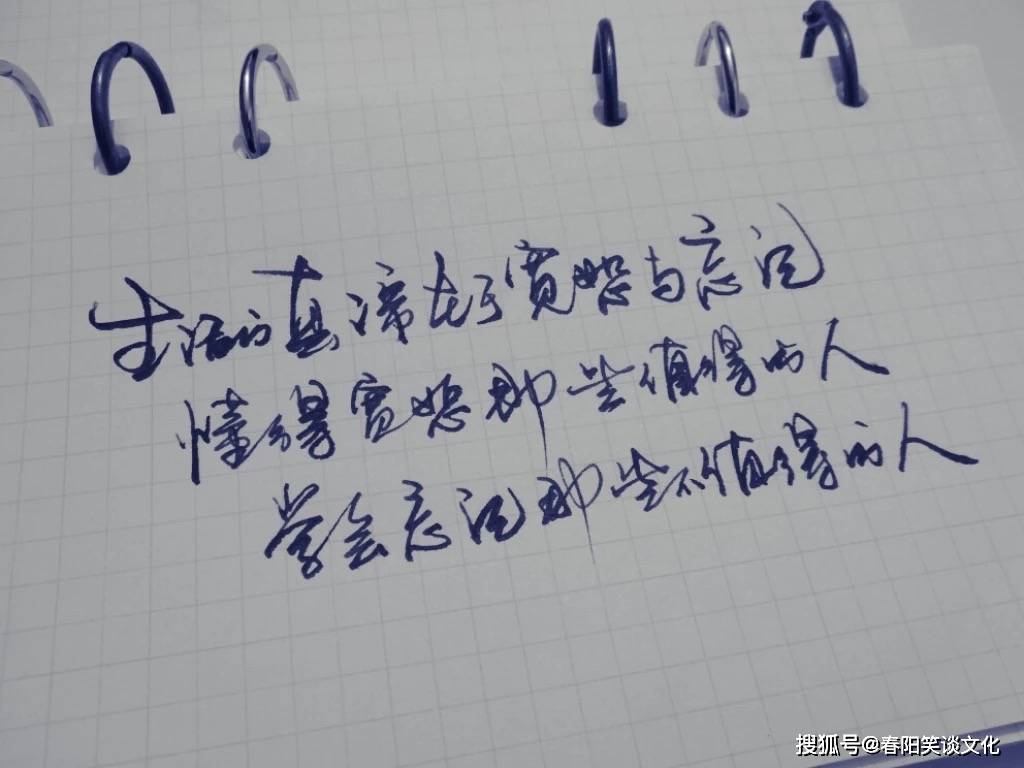 生活的真谛在于宽恕与忘记
懂得宽恕那些值得的人
学会忘记那些不值得的人
搜狐号@春阳笑谈文化